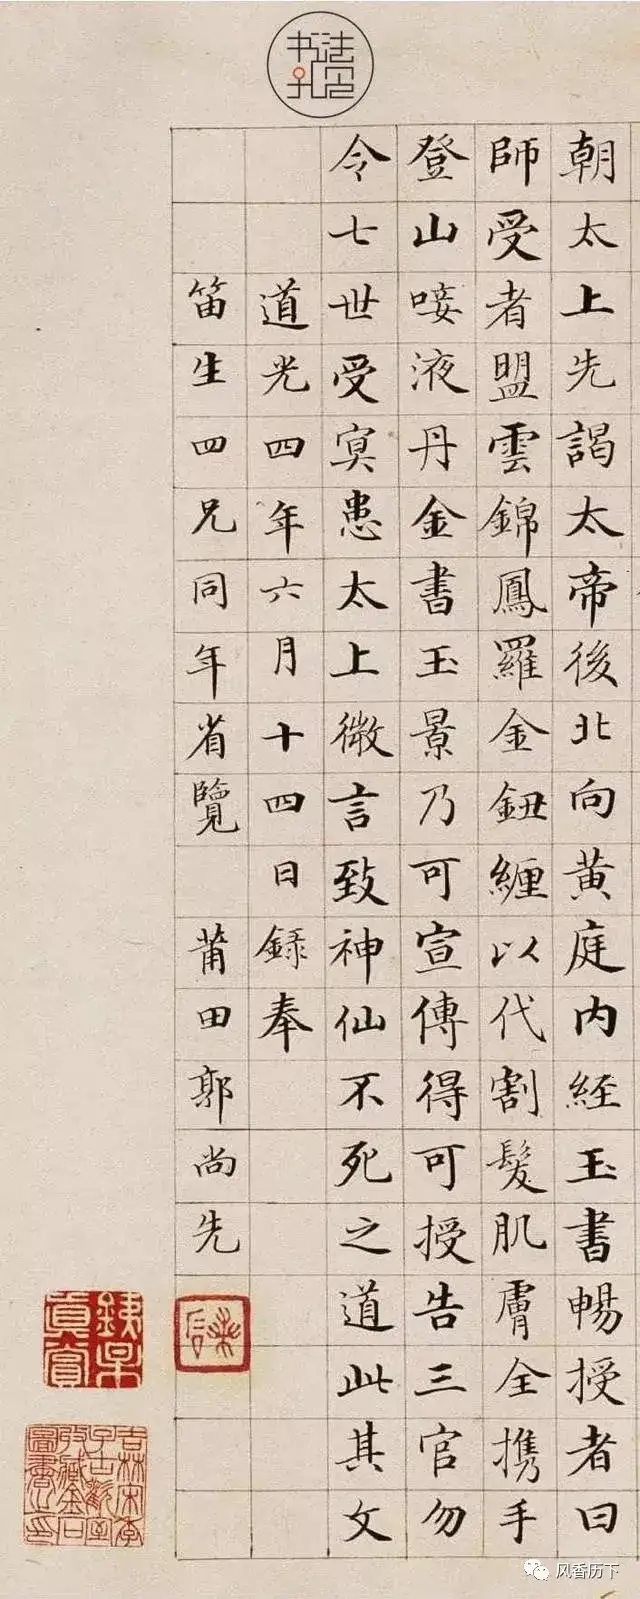 朝太上先謁太帝後北向黄庭内經玉書暢授者曰
師受者盟雲錦鳳羅金鈕纏以代割髮肌膚全携手
登山唼液丹金書玉景乃可宣傳得可授告三官勿
令七世受冥患太上微言致神仙不死之道此其文
道光四年六月十四日錄奉
笛生四兄同年省覽 莆田郭尚先
吉林宋季子古歡室收藏金石圖書之印
风香历下